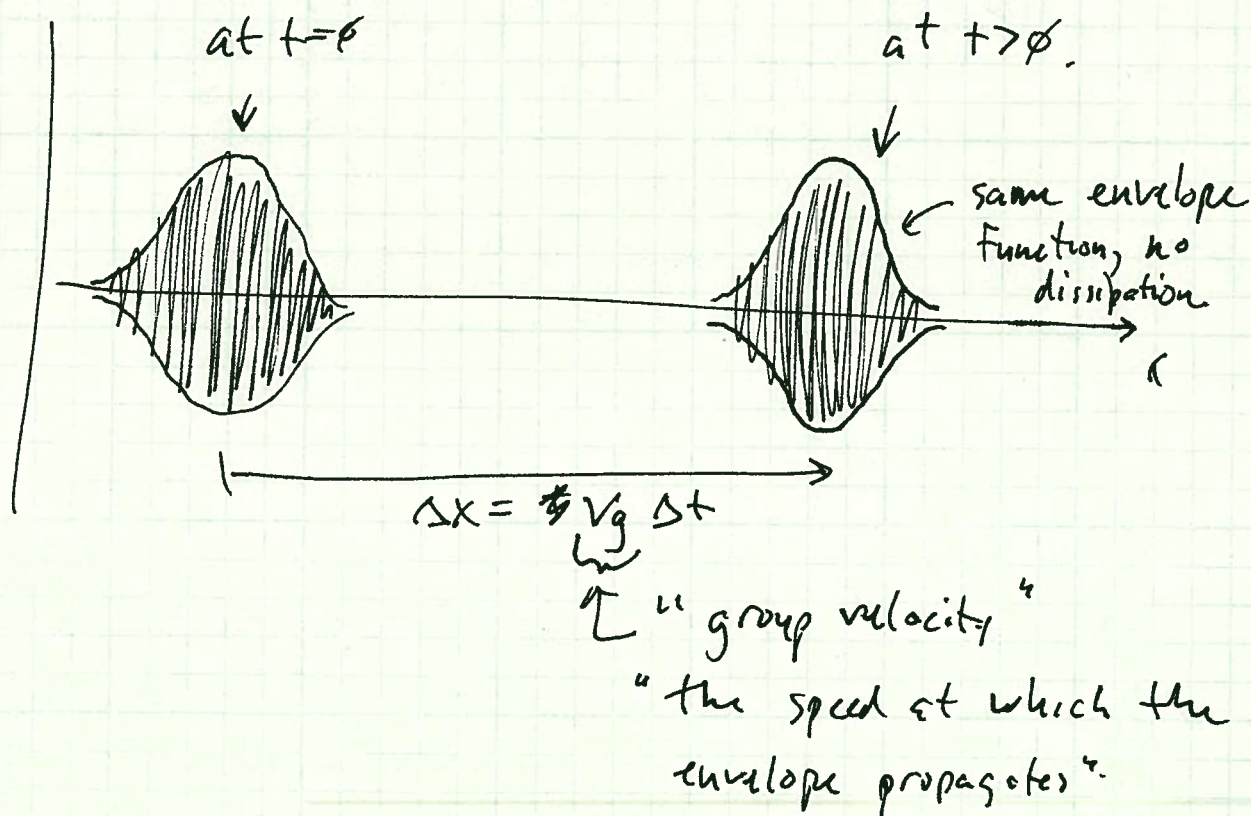 at t=∅
at t>∅.
same envelope
function, no
dissipation
x
Δx = Vg Δt
"group velocity"
"the speed at which the
envelope propagates".